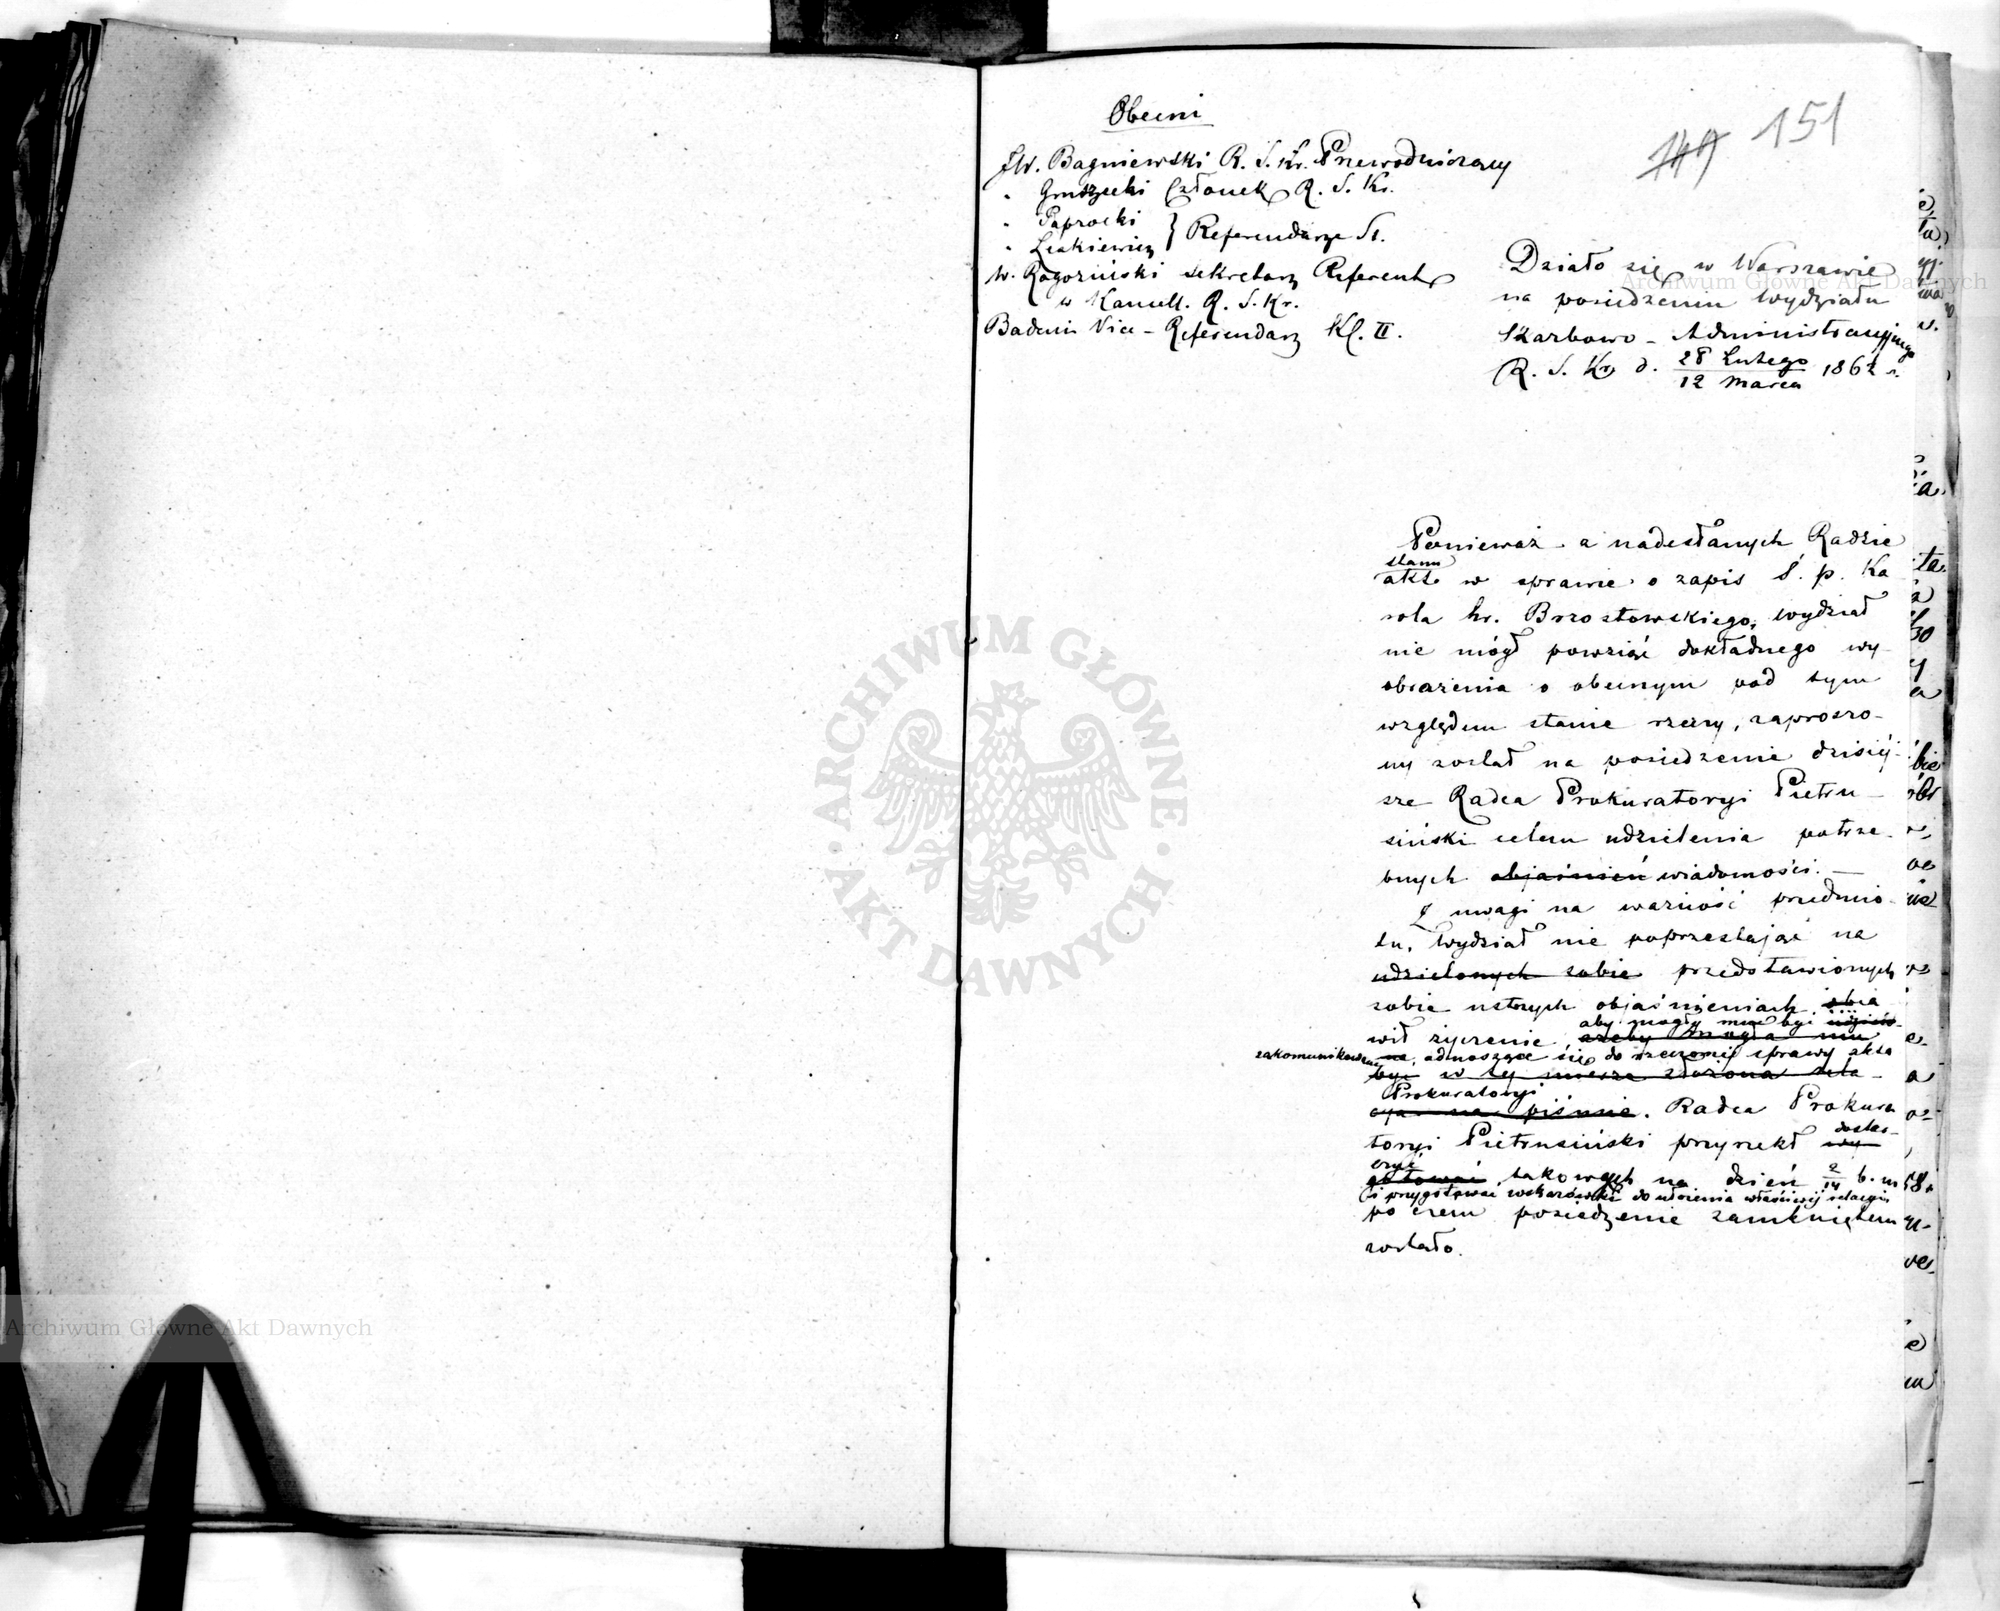 Obecni
149 151
JW. Bagniewski R. S. Kr. Przewodniczący
" Gruszecki Członek R. S. Kr.
" Paprocki
" Leskiewicz } Referendarze St.
W. Rogoziński sekretarz Referent
w Kancell. R. S. Kr.
Badeni Vice-Referendarz Kl. II.
Działo się w Warszawie
na posiedzeniu Wydziału
Skarbowo-Administracyjnego
R. S. Kr. d. 28 Lutego / 12 Marca 1862 r.
Ponieważ z nadesłanych Radzie
Stanu
akt w sprawie o zapis ś. p. Ka
rola hr. Brzostowskiego, Wydział
nie mógł powziąć dokładnego wy-
obrażenia o obecnym pod tym
względem stanie rzeczy, zaproszo-
ny został na posiedzenie dzisiej-
sze Radca Prokuratoryi Pietru-
siński celem udzielenia potrze-
bnych objaśnień wiadomości. —
Z uwagi na ważność przedmio-
tu, Wydział nie poprzestając na
udzielonych sobie przedstawionych
sobie ustnych objaśnieniach, obja
wił życzenie, ażeby mogła mu
aby mogły mu być
zakomunikowane odnoszące się do rzeczonej sprawy akta
być w tej mierze złożona rela-
Prokuratoryi
cya na piśmie. Radca Prokura
toryi Pietrusiński przyrzekł wy
dostar-
czyć
gotować takowych na dzień 2/14 b. m
i przygotować wskazówki do ułożenia właściwej relacyi,
po czem posiedzenie zamkniętem
zostało.
ARCHIWUM GŁÓWNE AKT DAWNYCH
Archiwum Główne Akt Dawnych
Archiwum Główne Akt Dawnych